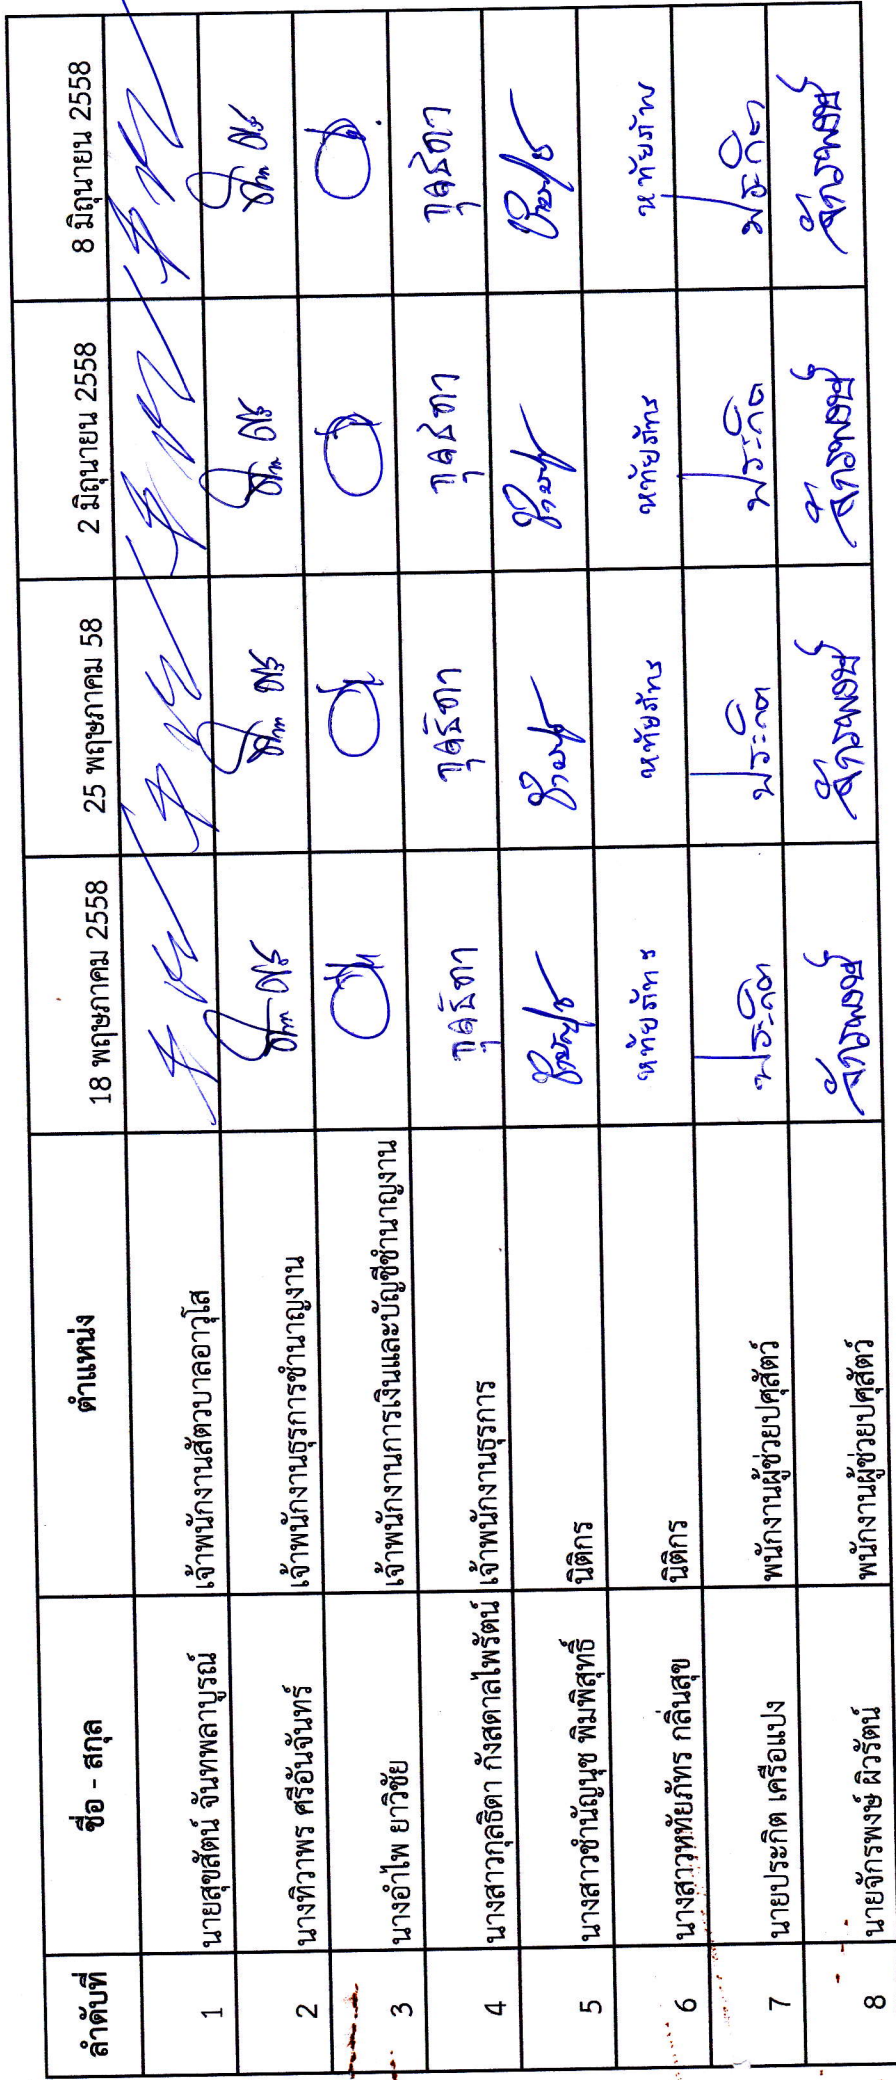 ลำดับที่ ชื่อ - สกุล ตำแหน่ง 18 พฤษภาคม 2558 25 พฤษภาคม 58 2 มิถุนายน 2558 8 มิถุนายน 2558
1 นายสุขสัตน์ จันทพลาบูรณ์ เจ้าพนักงานสัตวบาลอาวุโส
2 นางทิวาพร ศรีอันจันทร์ เจ้าพนักงานธุรการชำนาญงาน
3 นางอำไพ ยาวิชัย เจ้าพนักงานการเงินและบัญชีชำนาญงาน
4 นางสาวกุลธิดา กังสดาลไพรัตน์ เจ้าพนักงานธุรการ กุลธิดา กุลธิดา กุลธิดา กุลธิดา
5 นางสาวชำนัญนุช พิมพิสุทธิ์ นิติกร
6 นางสาวหทัยภัทร กลิ่นสุข นิติกร หทัยภัทร หทัยภัทร หทัยภัทร หทัยภัทร
7 นายประกิต เครือแปง พนักงานผู้ช่วยปศุสัตว์ ประกิต ประกิต ประกิต ประกิต
8 นายจักรพงษ์ ผิวรัตน์ พนักงานผู้ช่วยปศุสัตว์ จักรพงษ์ จักรพงษ์ จักรพงษ์ จักรพงษ์